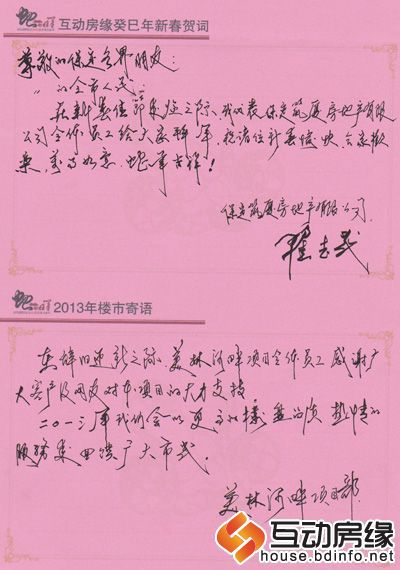 互动房缘癸巳年新春贺词
尊敬的保定各界朋友：
〃的全市人民。
在新春佳节来临之际，我代表保定筑厦房地产有限
公司全体员工给大家拜年，祝诸位计春愉快、合家欢
乐，万事如意，蛇年吉祥！
保定筑厦房地产有限公司
翟志武
2013年楼市寄语
在辞旧迎新之际，美林河畔项目全体员工感谢广
大客户及网友对本项目的大力支持
二〇一三年我们会以更高的楼盘品质，热情的
服务来回馈广大市民。
美林河畔项目部
互动房缘
house.bdinfo.net